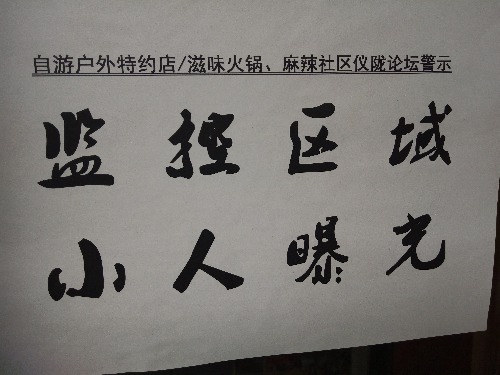 自游户外特约店/滋味火锅、麻辣社区仪陇论坛警示
监控区域
小人曝光